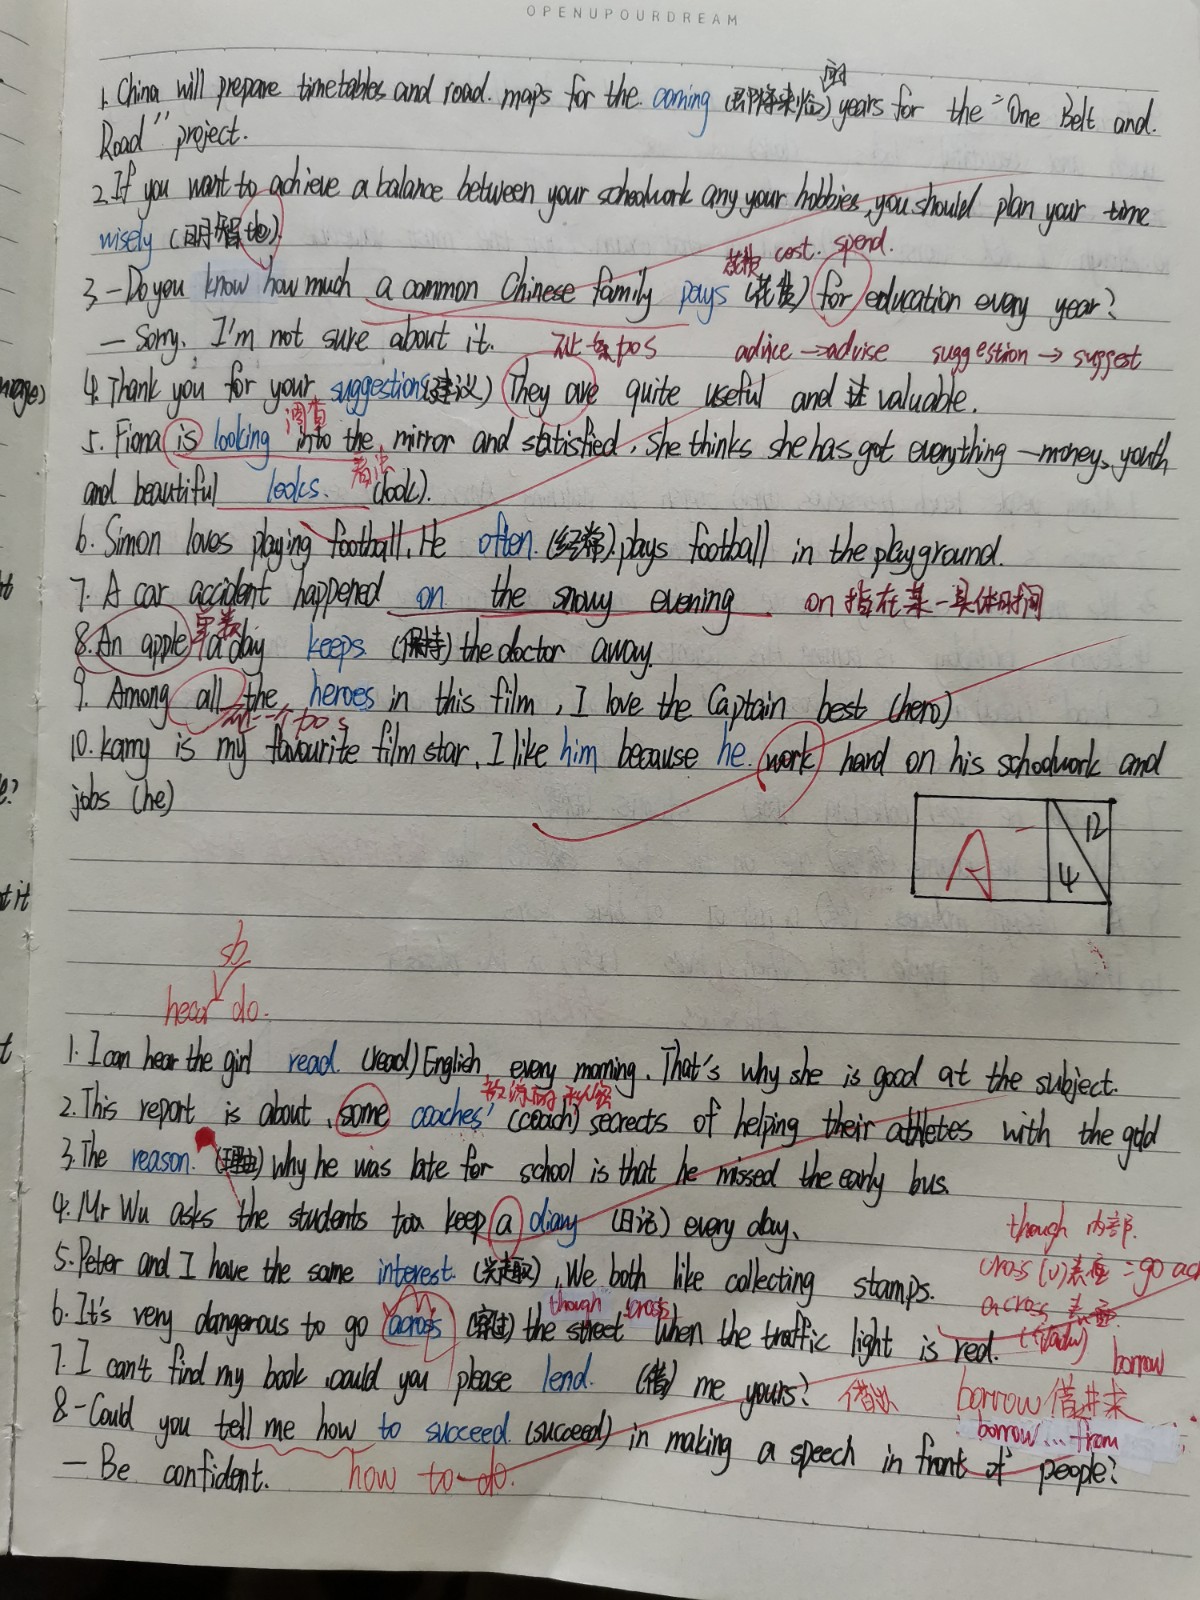 OPENUPOURDREAM
1. China will prepare timetables and road. maps for the. coming (即将来临的) years for the "One Belt and.
Road" project.
2. If you want to achieve a balance between your schoolwork any your hobbies, you should plan your time
wisely (明智地).
花费 cost. spend.
3 - Do you know how much a common Chinese family pays (花费) for education every year?
- Sorry, I'm not sure about it. pos advice → advise suggestion → suggest
4. Thank you for your suggestions (建议) They are quite useful and valuable.
5. Fiona is looking into the mirror and statisfied. She thinks she has got everything - money, youth
and beautiful looks. (look).
6. Simon loves playing football. He often. (经常). plays football in the playground.
7. A car accident happened on the snowy evening. on 指在某一具体时间
8. An apple a day keeps (保持) the doctor away.
9. Among all the heroes in this film, I love the Captain best (hero)
10. Karry is my favourite film star. I like him because he. work hard on his schoolwork and
jobs (he)
A- 12
4
sb
hear do.
1. I can hear the girl read. (read) English every morning. That's why she is good at the subject.
2. This report is about some coaches' (coach) secrects of helping their athletes with the gold
3. The reason. (理由) why he was late for school is that he missed the early bus.
4. Mr Wu asks the students too keep a diary (日记) every day.
though 内部.
5. Peter and I have the same interest. (兴趣). We both like collecting stamps.
cross (v) 表面 = go ac
across 表面
though cross
6. It's very dangerous to go across (穿过) the street when the traffic light is red.
borrow
7. I can't find my book could you please lend. (借) me yours? 借出 borrow 借进来
borrow...from
8 - Could you tell me how to succeed. (succeed) in making a speech in front of people?
- Be confident. how to do.